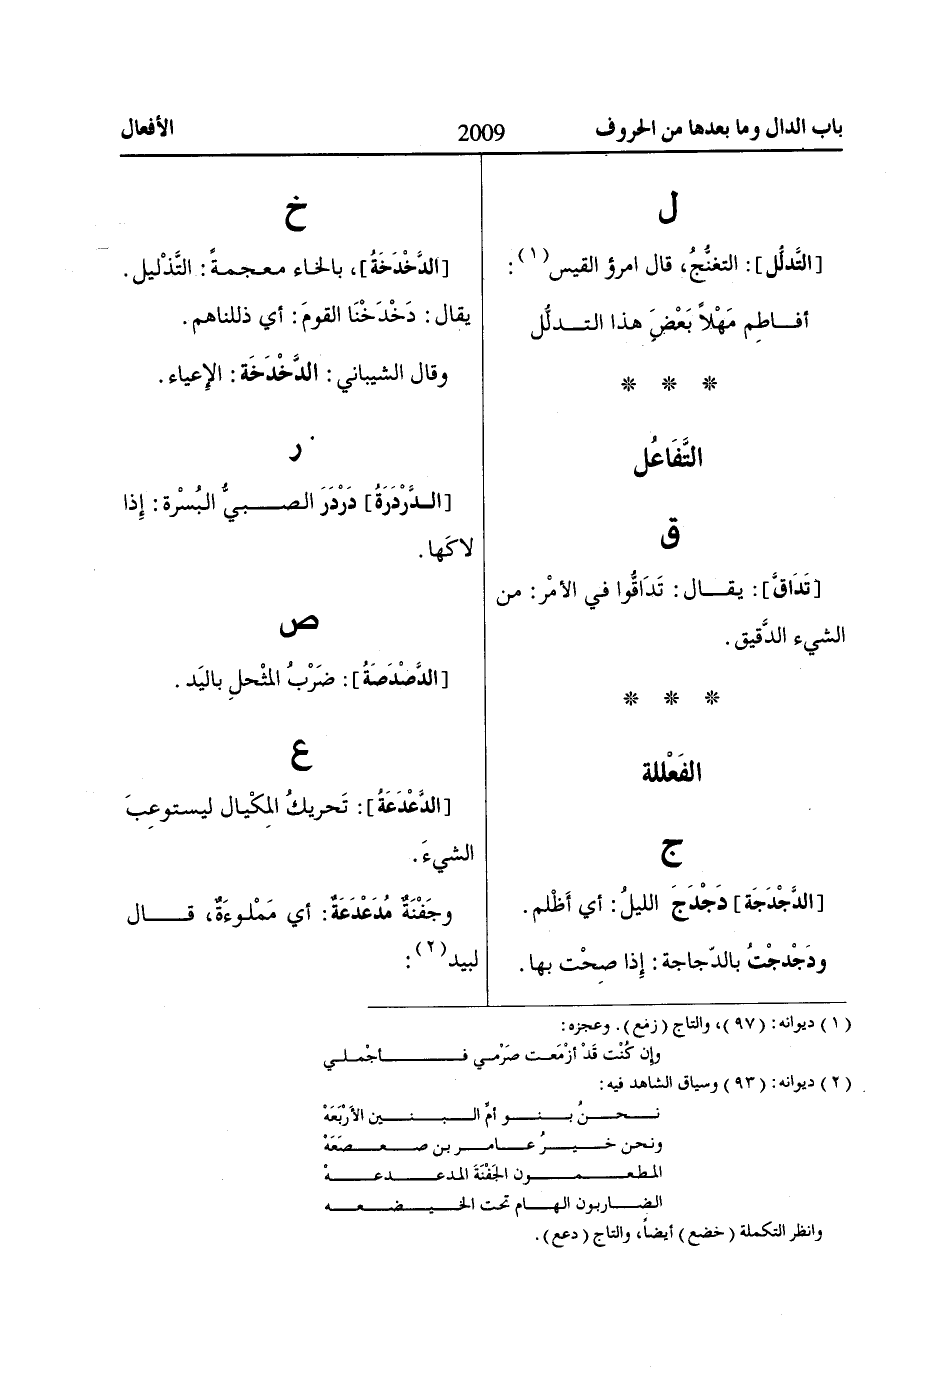 باب الدال وما بعدها من الحروف 2009 الأفعال
ل
[التَّدلُّل]: التغنُّجُ، قال امرؤ القيس(١):
أفـاطِم مَهْلاً بَعْضَ هذا التـدلُّل
* * *
التَّفَاعُل
ق
[تَدَاقَّ]: يقـال: تَدَاقُّوا في الأمْر: من
الشيء الدَّقيق.
* * *
الفَعْللة
ج
[الدَّجْدَجَة] دَجْدَجَ الليلُ: أي أَظْلم.
ودَجْدجْتُ بالدّجاجة: إذا صِحْت بها.
خ
[الدَّخْدَخَةُ]، بالخاء معجمةً: التَّذْليل.
يقال: دَخْدَخْنَا القومَ: أي ذللناهم.
وقال الشيباني: الدَّخْدَخَة: الإعياء.
ر
[الـدَّرْدَرَةُ] دَرْدَرَ الصـبيُّ البُسْرة: إِذا
لاكَها.
ص
[الدَّصْدَصَةُ]: ضَرْبُ المُنْخلِ باليَد.
ع
[الدَّعْدَعَةُ]: تَحريكُ المِكْيال ليستوعِبَ
الشيءَ.
وجَفْنَةٌ مُدَعْدَعَةٌ: أي مَمْلوءَةٌ، قـال
لبيد(٢):
(١) ديوانه: (٩٧)، والتاج (زمع). وعجزه:
وإن كُنْت قَدْ أزْمَعـت صَرْمي فـأجْملي
(٢) ديوانه: (٩٣) وسياق الشاهد فيه:
نـحـنُ بـنـو أمِّ الـبـنـين الأرْبَعَهْ
ونحن خـيـرُ عـامـر بن صـعـصَعَهْ
المطعـمـون الجَفْنَةَ المدعـدعـهْ
الضـاربون الهـام تحت الخـيـضـعـه
وانظر التكملة (خضع) أيضاً، والتاج (دعع).